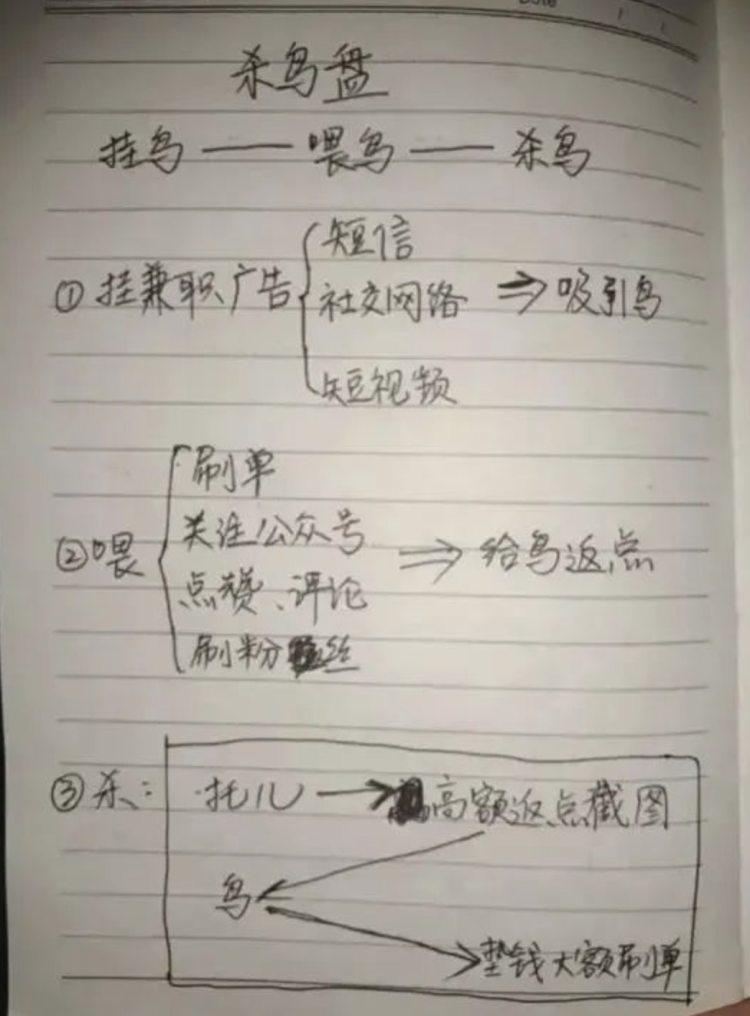 Date / /
杀鸟盘
挂鸟 —— 喂鸟 —— 杀鸟
短信
①挂兼职广告 社交网络 ⇒ 吸引鸟
短视频
刷单
关注公众号
②喂 ⇒ 给鸟返点
点赞、评论
刷粉丝
③杀: 托儿 → 高额返点截图
鸟
垫钱大额刷单